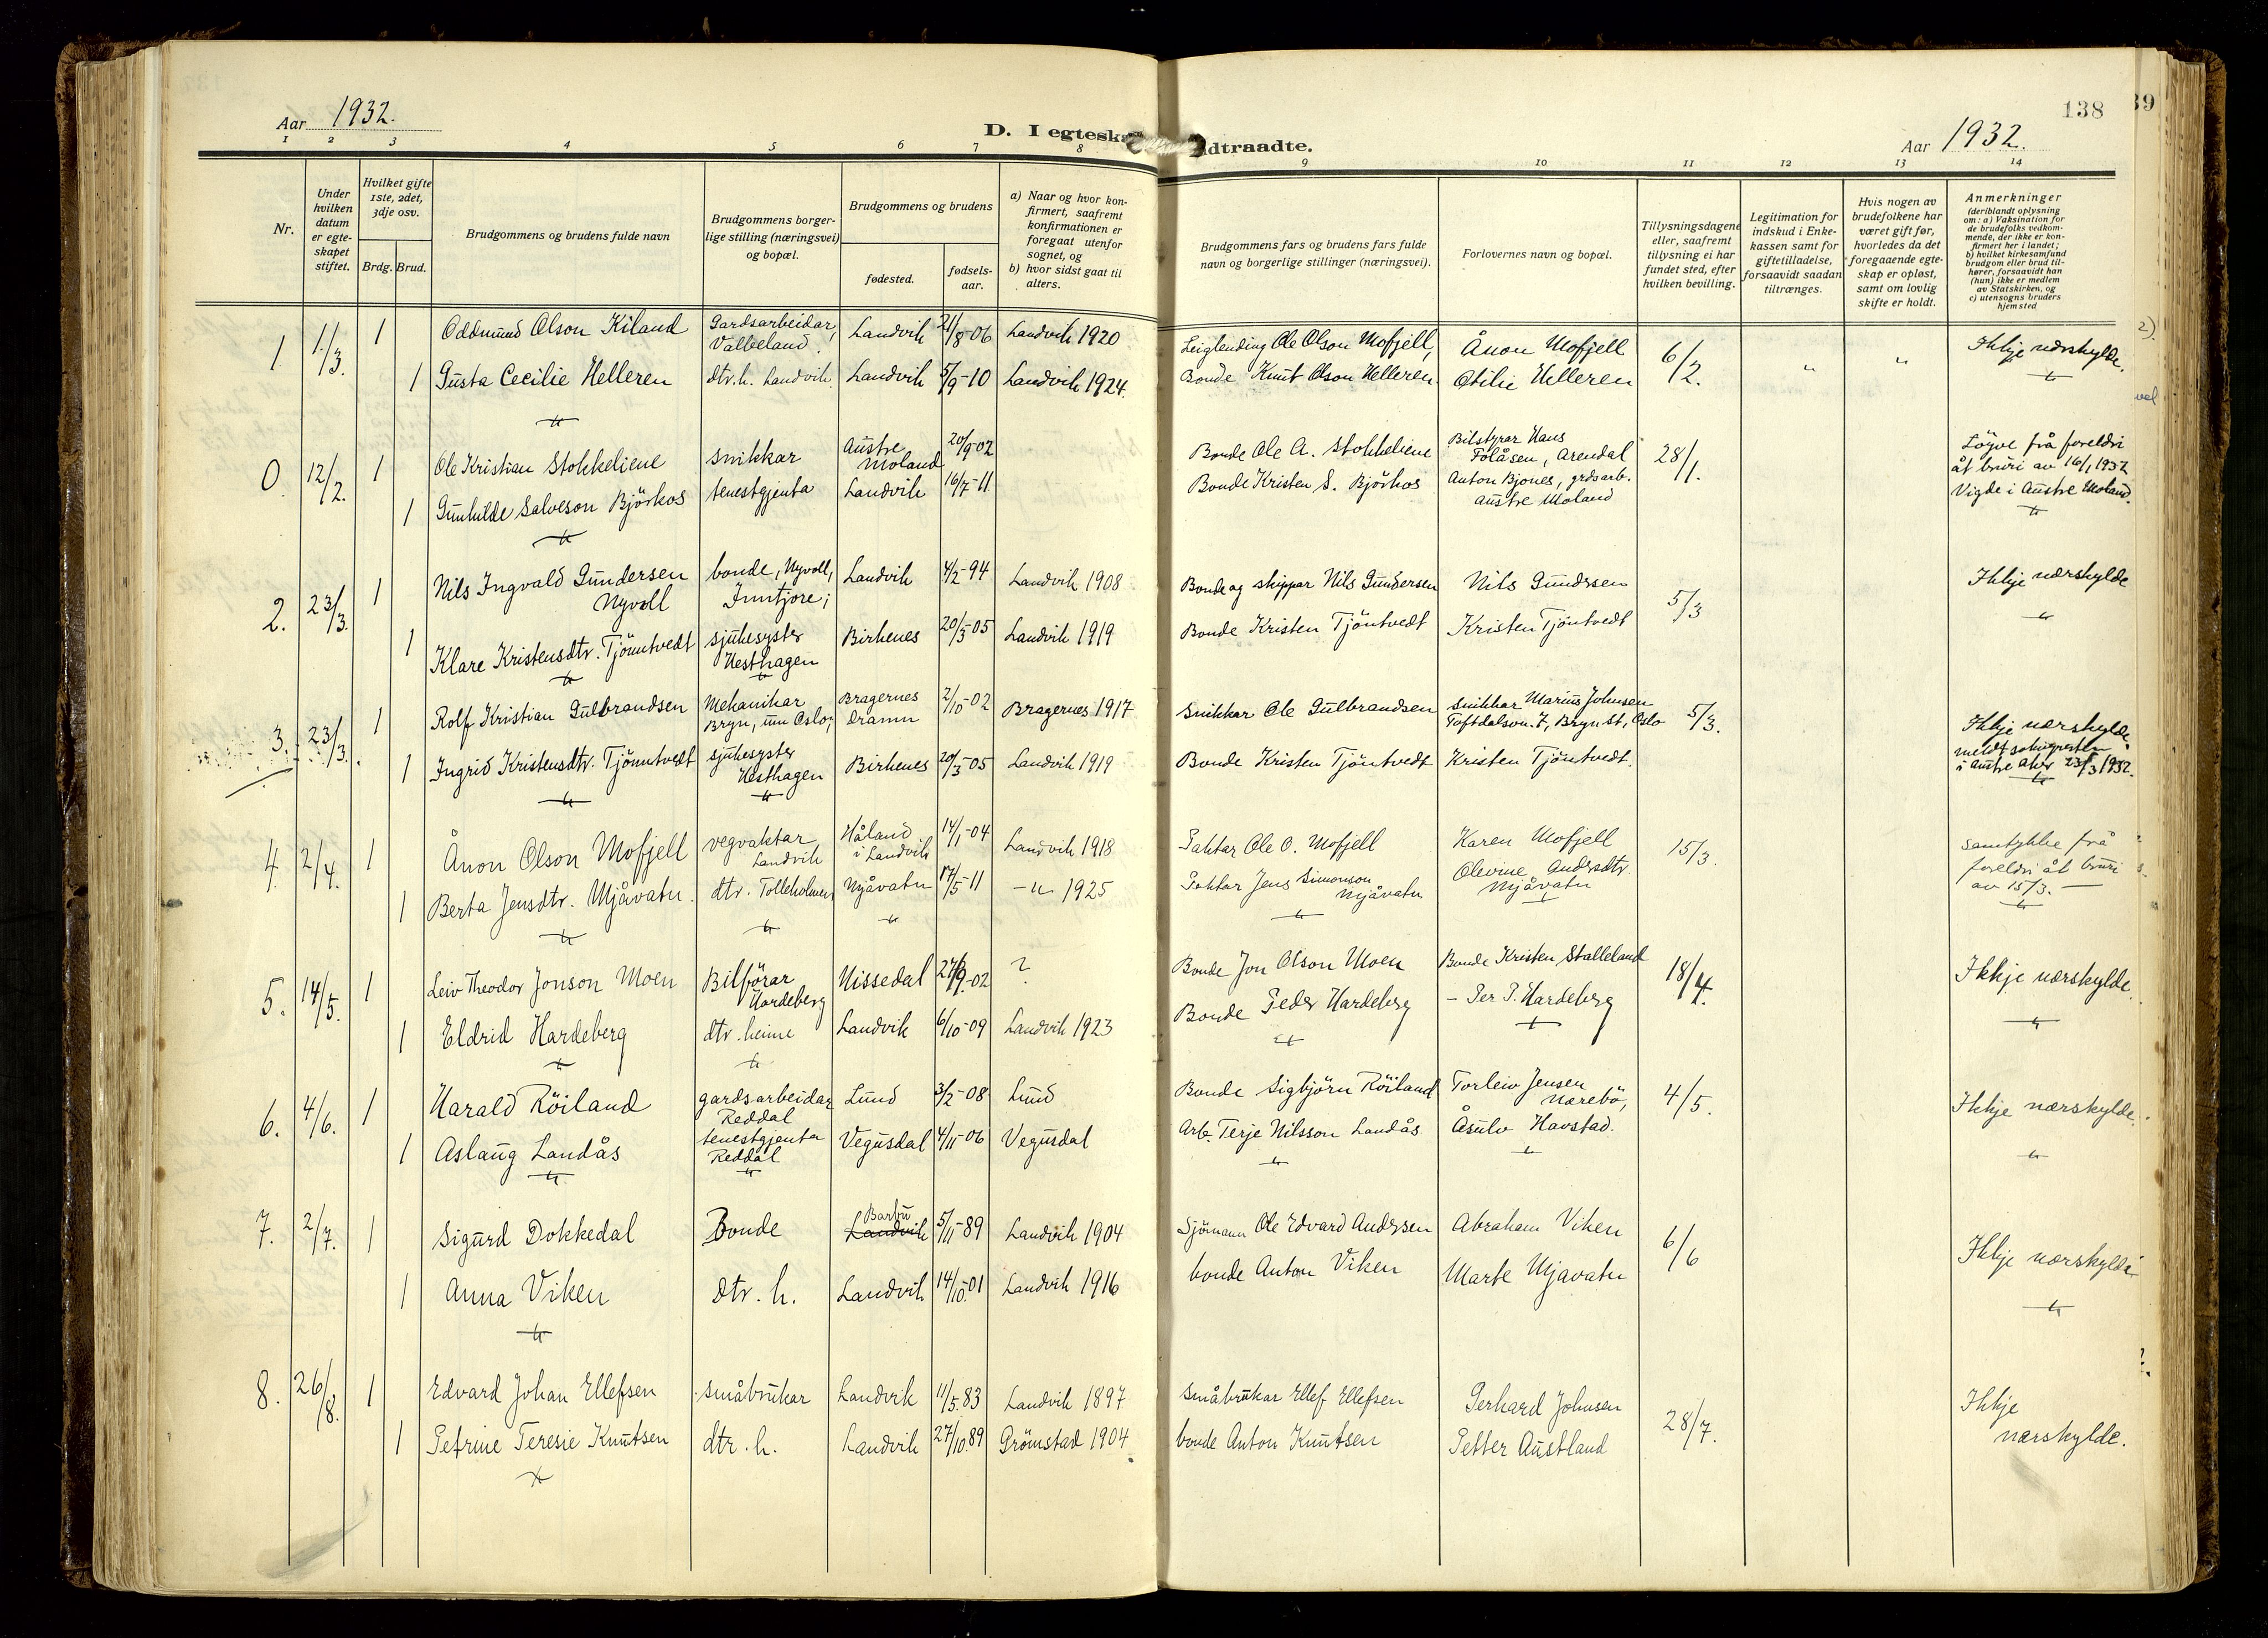 Aar 1932.
D. I egteska
1 2 3 4 5 6 7 8
Nr.
Under hvilken datum er egteskapet stiftet.
Hvilket gifte 1ste, 2det, 3dje osv.
Brdg. Brud.
Brudgommens og brudens fulde navn
Brudgommens borgerlige stilling (næringsvei) og bopæl.
Brudgommens og brudens
fødested.
fødselsaar.
a) Naar og hvor konfirmert, saafremt konfirmationen er foregaat utenfor sognet, og
b) hvor sidst gaat til alters.
1 1/3. 1 Oddmund Olson Kiland Gardsarbeidar, Valleland. Landvik 21/8-06 Landvik 1920
1 Gusta Cecilie Helleren dtr. h. Landvik. Landvik 5/9-10 Landvik 1924.
0. 12/2. 1 Ole Kristian Stokkeliene snikkar Austre Moland 20/9-02
1 Gunhilde Salveson Björkos tenestgjenta Landvik 16/7-11
2. 23/3. 1 Nils Ingvald Gundersen Nyvoll bonde, Nyvoll, Inntjore; Landvik 4/2-94 Landvik 1908
1 Klare Kristensdtr. Tjönntvedt sjukesyster Hesthagen Birkenes 20/3-05 Landvik 1919
3. 23/3. 1 Rolf Kristian Gulbrandsen Mekanikar Bryn, um Oslo; Bragernes Dramn 2/10-02 Bragernes 1917
1 Ingrid Kristensdtr. Tjönntvedt sjukesyster Hesthagen Birkenes 20/3-05 Landvik 1919
4. 2/4. 1 Ånon Olson Mofjell vegvaktar Landvik Håland i Landvik 14/1-04 Landvik 1918
1 Berta Jensdtr. Mjåvatn. dtr. Tolleholmen Mjåvatn 17/5-11 -"- 1925
5. 14/5. 1 Leiv Theodor Jonson Moen Bilförar Hardeberg Nissedal 27/9-02 ?
1 Eldrid Hardeberg dtr. heime Landvik 6/10-09 Landvik 1923
6. 4/6. 1 Harald Röiland gardsarbeidar Reddal Lund 3/2-08 Lund
1 Aslaug Landås tenestgjenta Reddal Vegusdal 4/11-06 Vegusdal
7. 2/7. 1 Sigurd Dokkedal Bonde Barbu Landvik 5/11-89 Landvik 1904
1 Anna Viken dtr. h. Landvik 14/10-01 Landvik 1916
8. 26/8. 1 Edvard Johan Ellefsen småbrukar Landvik 11/5.83 Landvik 1897
1 Petrine Teresie Knutsen dtr. h. Landvik 27/10.89 Grömstad 1904
138
39
dtraadte.
Aar 1932.
9 10 11 12 13 14
Brudgommens fars og brudens fars fulde navn og borgerlige stillinger (næringsvei).
Forlovernes navn og bopæl.
Tillysningsdagene eller, saafremt tillysning ei har fundet sted, efter hvilken bevilling.
Legitimation for indskud i Enkekassen samt for giftetilladelse, forsaavidt saadan tiltrænges.
Hvis nogen av brudefolkene har været gift før, hvorledes da det foregaaende egteskap er opløst, samt om lovlig skifte er holdt.
Anmerkninger (deriblandt oplysning om: a) Vaksination for de brudefolks vedkommende, der ikke er konfirmert her i landet; b) hvilket kirkesamfund brudgom eller brud tilhører, forsaavidt han (hun) ikke er medlem av Statskirken, og c) utensogns bruders hjemsted
Leiglending Ole Olson Mofjell, Ånon Mofjell 6/2. " " Ikkje nærskylde.
Bonde Knut Olson Helleren. Otilie Helleren
Bonde Ole A. Stokkeliene Bilstyrar Hans Folåsen, Arendal 28/1. Löyve frå foreldri åt bruri av 16/1 1932
Bonde Kristen S. Björkos Anton Bjones, grdsarb. Austre Moland Vigde i Austre Moland.
Bonde og skippar Nils Gundersen Nils Gundrsen 5/3 Ikkje nærskylde
Bonde Kristen Tjöntvedt Kristen Tjöntvedt
Snikkar Ole Gulbrandsen Snikkar Marius Johnsen Toftdalsvn. 7, Bryn St, Oslo 5/3. Ikkje nærskylde
Bonde Kristen Tjöntvedt Kristen Tjöntvedt. meldt soknepresten i Austre Aker 23/3 1932.
Paktar Ole O. Mofjell Karen Mofjell 15/3. samtykke frå foreldri åt bruri av 15/3. —
Paktar Jens Simonson Mjåvatn Olevine Andrsdtr. Mjåvatn
Bonde Jon Olson Moen Bonde Kristen Stalleland 18/4. Ikkje nærskylde.
Bonde Peder Hardeberg - Per P. Hardeberg
Bonde Sigbjörn Röiland Torleiv Jensen Nærebö, 4/5. Ikkje nærskylde.
Arb. Terje Nilsson Landås Åsulv Havstad.
Sjömann Ole Edvard Andersen Abraham Viken 6/6 Ikkje nærskylde
bonde Anton Viken Marte Mjavatn
Småbrukar Ellef Ellefsen Gerhard Johnsen 28/7. Ikkje nærskylde.
bonde Anton Knutsen Petter Austland